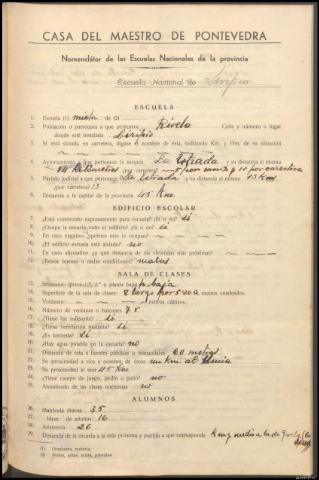 CASA DEL MAESTRO DE PONTEVEDRA
Nomenclátor de las Escuelas Nacionales de la provincia
Escuela Nacional de
ESCUELA
1. Escuela (1) mixta de (2)
2. Población o parroquia a que pertenece Rivelo Calle y número o lugar
donde está instalada
3. Si está situada en carretera, dígase el nombre de ésta, indicando Km. y Hm. de su situación
4. Ayuntamiento a que pertenece la escuela La Estrada y su distancia al mismo
5 por senda y 10 por carretera
5. Partido judicial a que pertenece La Estrada y su distancia al mismo 13 Km
(por carretera) 13
6. Distancia a la capital de la provincia 45 Km.
EDIFICIO ESCOLAR
7. ¿Está construido expresamente para escuela? (Sí o no) si
8. ¿Ocupa la escuela todo el edificio? (Sí o no) si
9. En caso negativo, ¿quiénes más lo ocupan?
10. ¿El edificio escuela está aislado? no
11. En caso afirmativo ¿a qué distancia de las viviendas más próximas?
12. ¿Reúne buenas o malas condiciones? malas
SALA DE CLASES
13. Situación: planta baja
14. Superficie de la sala de clases 8 largo por 5 ancho metros cuadrados.
15. Volúmen: metros cúbicos.
16. Número de ventanas o balcones
17. ¿Tiene luz suficiente? si
18. ¿Tiene ventilación bastante? si
19. ¿Es húmeda? si
20. ¿Hay agua potable en la escuela? no
21. Distancia de ésta a fuentes públicas o manantiales 60 metros
22. Su proximidad a ríos y nombre de éstos un Km al
23. Su proximidad al mar 45 Km
24. ¿Tiene campo de juego, jardín o patio? no
25. ¿Se alumbra las clases nocturnas? no
ALUMNOS
26. Matrícula diurna 35
27. Ídem de adultos 16
28. Asistencia 26
Distancia de la escuela a la más próxima y pueblo a que corresponde
(1) Graduada, unitaria.
(2) Niños, niñas, mixta, párvulos.